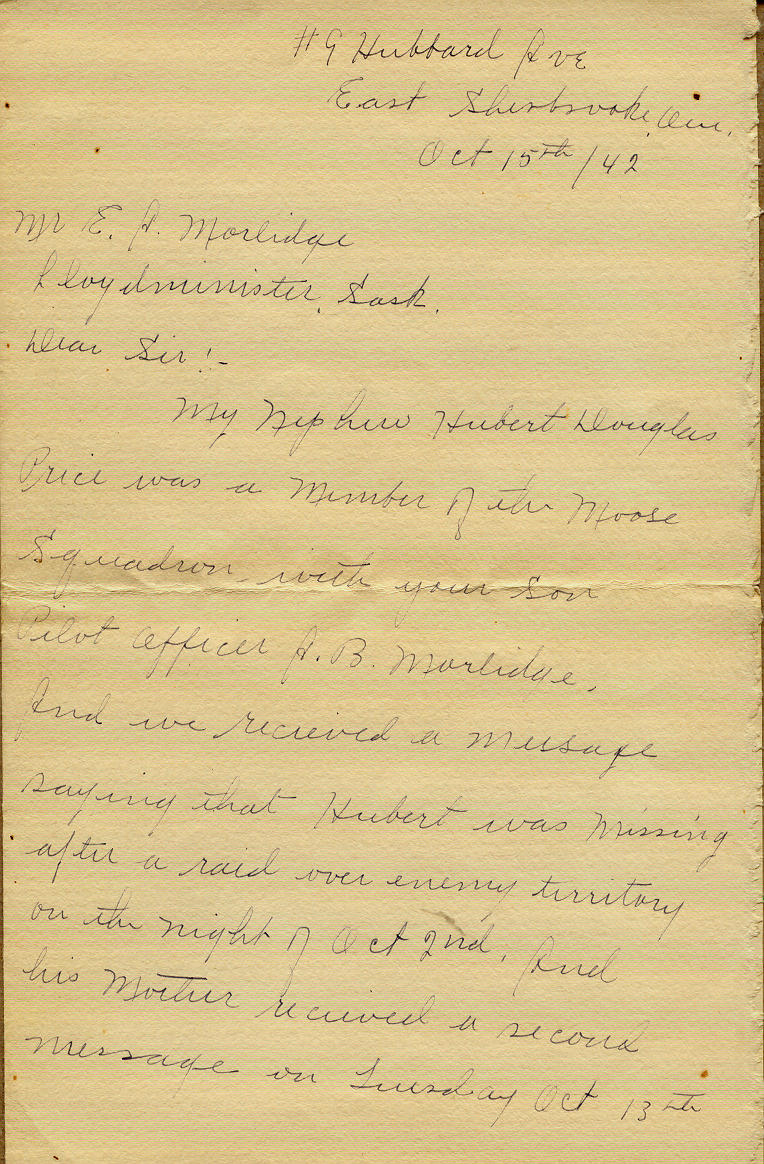 #9 Hubbard Ave
East Sherbrooke, Que.
Oct 15th/42
Mr E. A. Morlidge
Lloydminister, Sask.
Dear Sir!-
My Nephew Hubert Douglas
Price was a Member of the Moose
Squadron with your Son
Pilot Officer A. B. Morlidge.
And we recieved a message
saying that Hubert was missing
after a raid over enemy territory
on the night of Oct 2nd. And
his Mother recieved a second
message on Tuesday Oct 13th